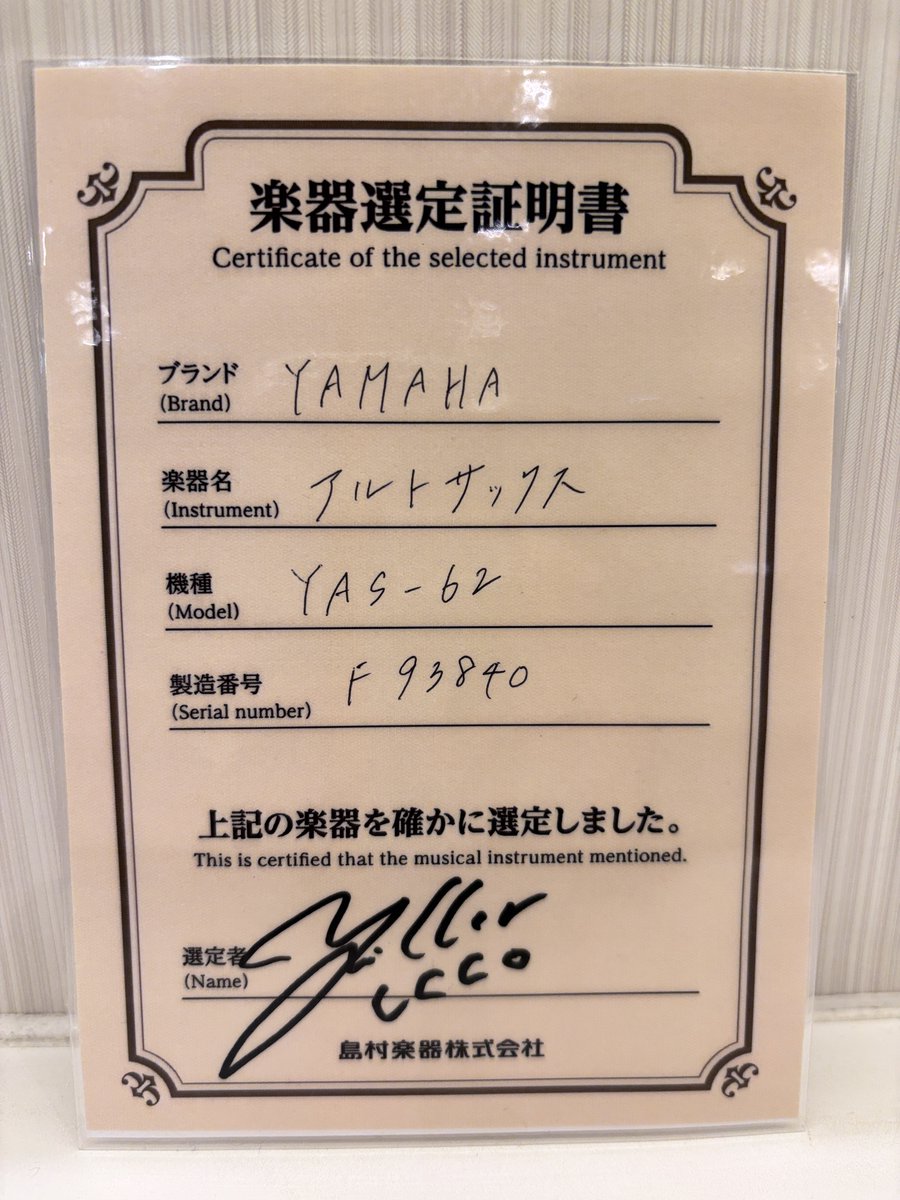 楽器選定証明書
Certificate of the selected instrument
ブランド YAMAHA
(Brand)
楽器名 アルトサックス
(Instrument)
機種 YAS-62
(Model)
製造番号 F93840
(Serial number)
上記の楽器を確かに選定しました。
This is certified that the musical instrument mentioned.
選定者
(Name)
島村楽器株式会社